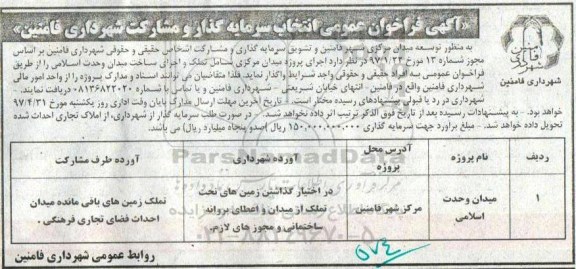 «آگهی فراخوان عمومی انتخاب سرمایه گذار و مشارکت شهرداری فامنین»
شهرداری فامنین
به منظور توسعه میدان مرکزی شهر فامنین و تشویق سرمایه گذاری و مشارکت اشخاص حقیقی و حقوقی شهرداری فامنین بر اساس
مجوز شماره ۱۳ مورخ ۹۷/۱/۲۳ در نظر دارد اجرای پروژه میدان مرکزی شامل تملک و اجرای ساخت میدان وحدت اسلامی را از طریق
فراخوان عمومی به افراد حقیقی و حقوقی واجد شرایط واگذار نماید. فلذا متقاضیان می توانند اسناد و مدارک پروژه را از واحد امور مالی
شهرداری فامنین واقع در فامنین - انتهای خیابان شریعتی - شهرداری فامنین و یا تماس با شماره ۰۸۱۳۶۸۲۲۰۲۰ دریافت نمایند. -
شهرداری در رد یا قبولی پیشنهادهای رسیده مختار است. - تاریخ آخرین مهلت ارسال مدارک پایان وقت اداری روز یکشنبه مورخ ۹۷/۴/۳۱
خواهد بود. - به پیشنهادات رسیده بعد از تاریخ فوق الذکر ترتیب اثر داده نخواهد شد. - در صورت طلب سرمایه گذار از شهرداری، از املاک تجاری احداث شده
تحویل داده خواهد شد. - مبلغ برآورد جهت سرمایه گذاری ۱۵۰,۰۰۰,۰۰۰,۰۰۰ ریال (صدو پنجاه میلیارد ریال) می باشد.
ردیف نام پروژه آدرس محل پروژه آورده شهرداری آورده طرف مشارکت
۱ میدان وحدت اسلامی مرکز شهر فامنین در اختیار گذاشتن زمین های تحت تملک از میدان و اعطای پروانه ساختمانی و مجوز های لازم. تملک زمین های باقی مانده میدان احداث فضای تجاری فرهنگی.
روابط عمومی شهرداری فامنین
ParsNamadData
۵۷۴